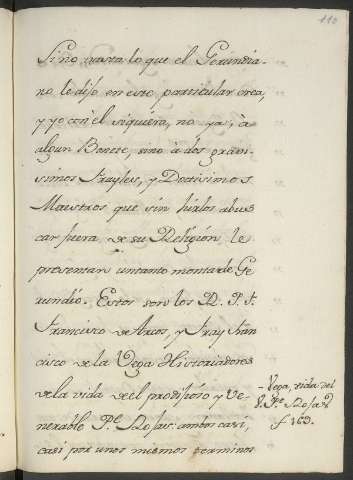 110
Si no basta lo que el Gerundia-
no le dijo en este particular crea,
y yo con él siquiera, no ya, à
algun Bonete, sino à dos gravi-
simos frayles, y Doctisimos
Maestros que sin hirlos abus
car fuera de su Religión le
presentan un tanto monta de Ge
rundio. Estos son los R. P. F.
Francisco de Arcos, y Fray Fran
cisco de la Vega Historiadores
de la vida del prodijioso y Ve-
nerable Pe. Rojas: ambos casi,
casi por unos mismos terminos
- Vega, vida del
V. Pe. Rojas
f. 163.